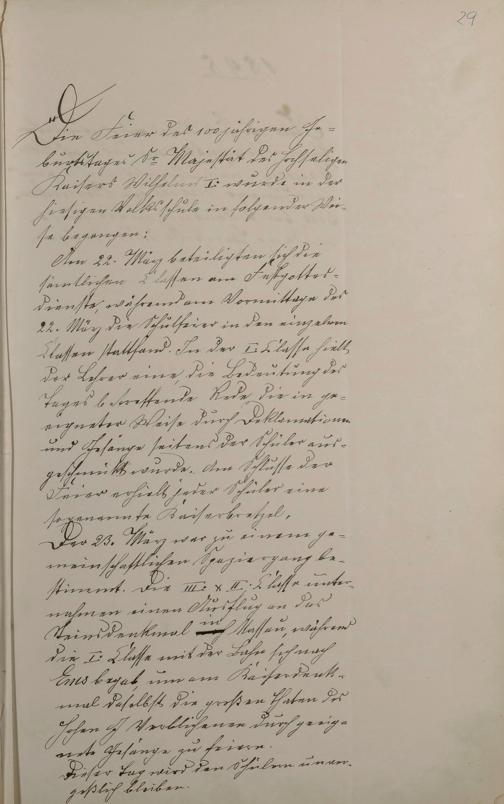 29
Die Feier des 100 jährigen Ge-
burtstages Sr Majestät des Hochseligen
Kaisers Wilhelms I. wurde in der
hiesigen Volksschule in folgender Wei-
se begangen:
Am 22. März beteiligten sich die
sämtlichen Classen am Festgottes-
dienste, während am Vormittage des
22. März die Schulfeier in den einzelnen
Classen stattfand. In der I. Classe hielt
der Lehrer eine, die Bedeutung des
Tages betreffende Rede, die in ge-
eigneter Weise durch Deklamationen
und Gesänge seitens der Schüler aus-
geschmückt wurde. Am Schlusse der
Feier erhielt jeder Schüler eine
sogenannte Kaiserbretzel.
Der 23. März war zu einem ge-
meinschaftlichen Spaziergang be-
stimmt. Die III. & II. Classe unter-
nahmen einen Ausflug an das
Steinsdenkmal in Nassau, während
die I. Classe mit der Bahn sich nach
Ems begab, um am Kaiserdenk-
mal daselbst die großen Thaten des
Hohen Verblichenen durch geeig-
nete Gesänge zu feiern.
Dieser Tag wird den Schülern unver-
geßlich bleiben.